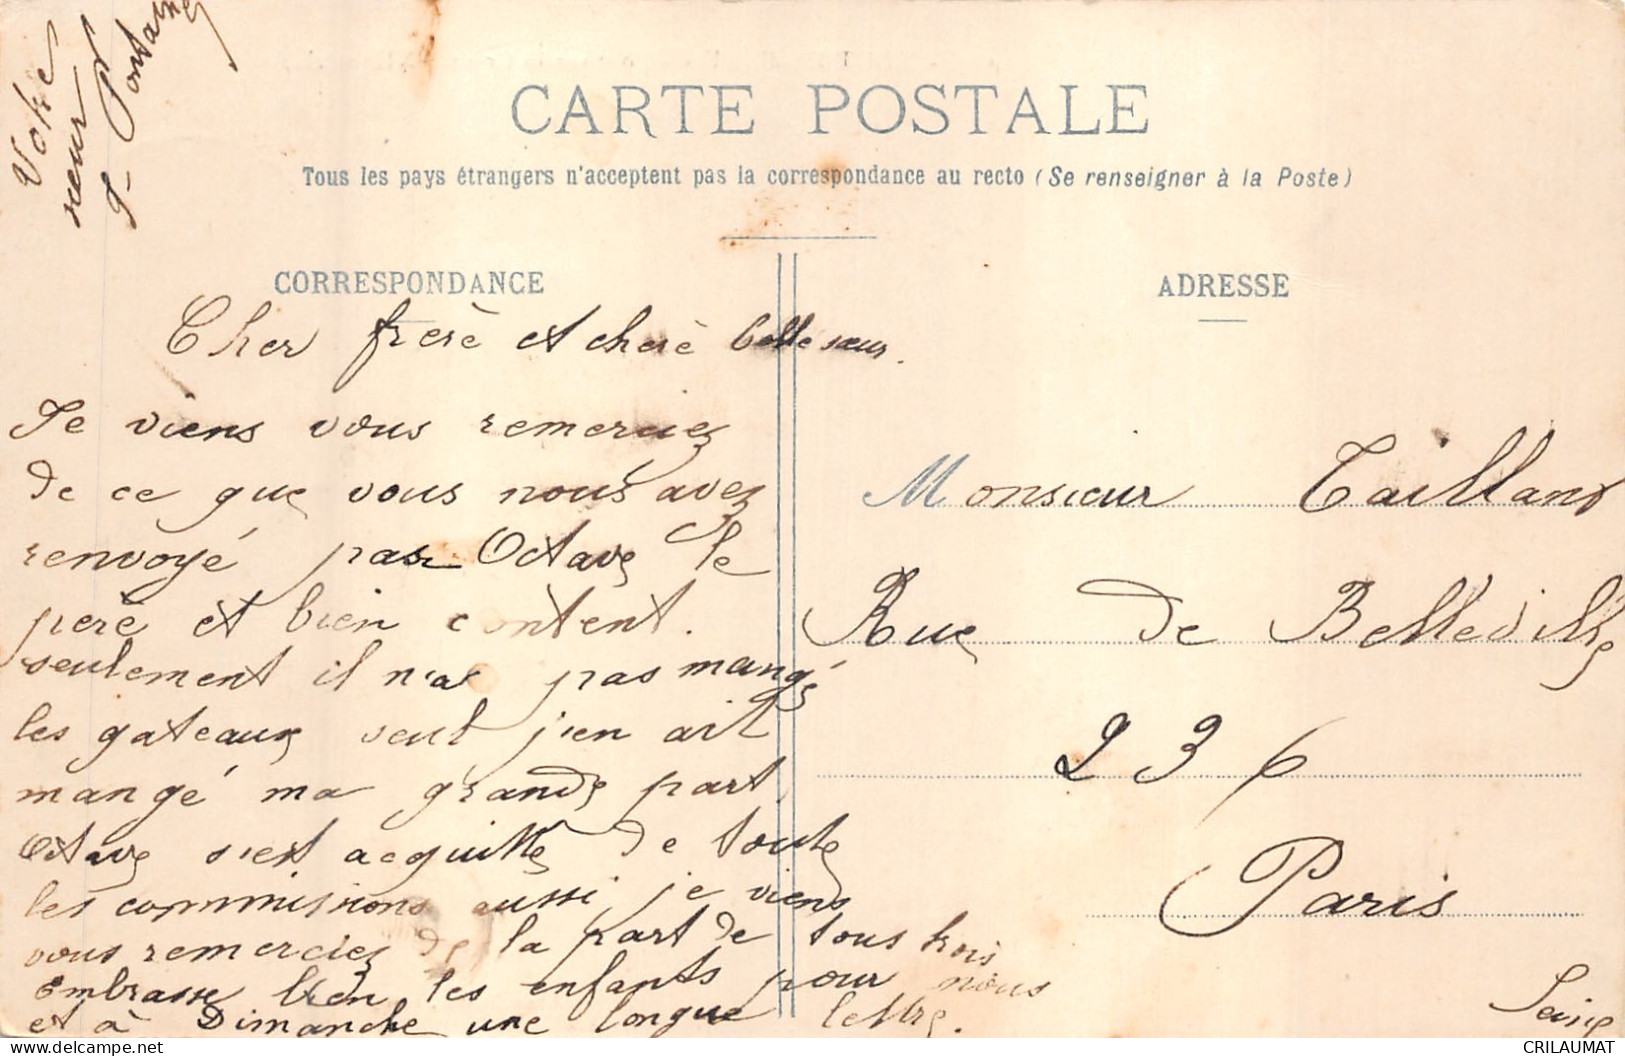 CARTE POSTALE
Tous les pays étrangers n'acceptent pas la correspondance au recto (Se renseigner à la Poste)
CORRESPONDANCE
Cher frerè et cherè belle sœur.
Je viens vous remerciez
de ce que vous nous avez
renvoyé par Octave le
perè et bien content.
seulement il n'a pas mangé
les gateaux seul j'en ait
mangé ma grande part.
Octave s'est acquitté de toute
les commissions aussi je viens
vous remerciez de la part de tous trois
Embrasse bien les enfants pour nous
et à Dimanche une longue lettre.
Votre
sœur
ADRESSE
Monsieur Taillant
Rue de Belleville
236
Paris
Seine
CRILAUMAT